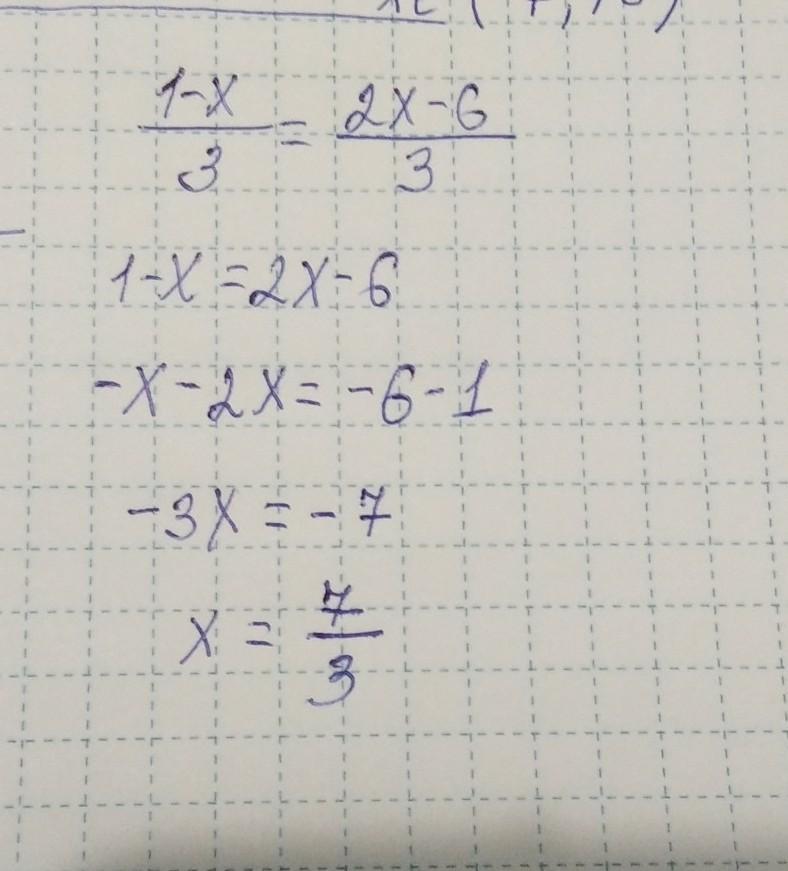 1-x/3 = 2x-6/3
1-x=2x-6
-x-2x=-6-1
-3x=-7
x = 7/3